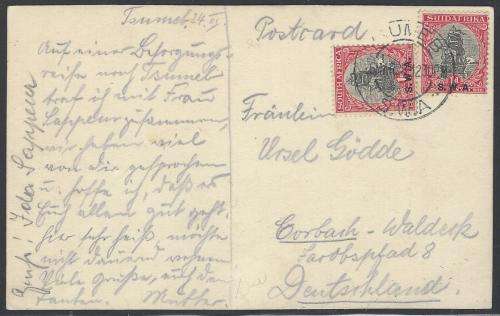 Tsumeb, 24. VI.
Auf einer Besorgungs-
reise nach Tsumeb
traf ich mit Frau
Sappeur zusammen,
wir haben viel
von dir gesprochen
u. hoffe ich, daß es
Euch allen gut geht.
hier sehr heiß, möchte
nicht dauernd wohnen
Viele Grüße, auch den
Tanten. Mutter
Gruß! Ida Sappeur
Postcard
Fräulein
Ursel Gödde
Corbach-Waldeck
8
Deutschland.
SUIDAFRIKA
S.W.A.
SUIDAFRIKA
S.W.A.
TSUMEB
S.W.A.